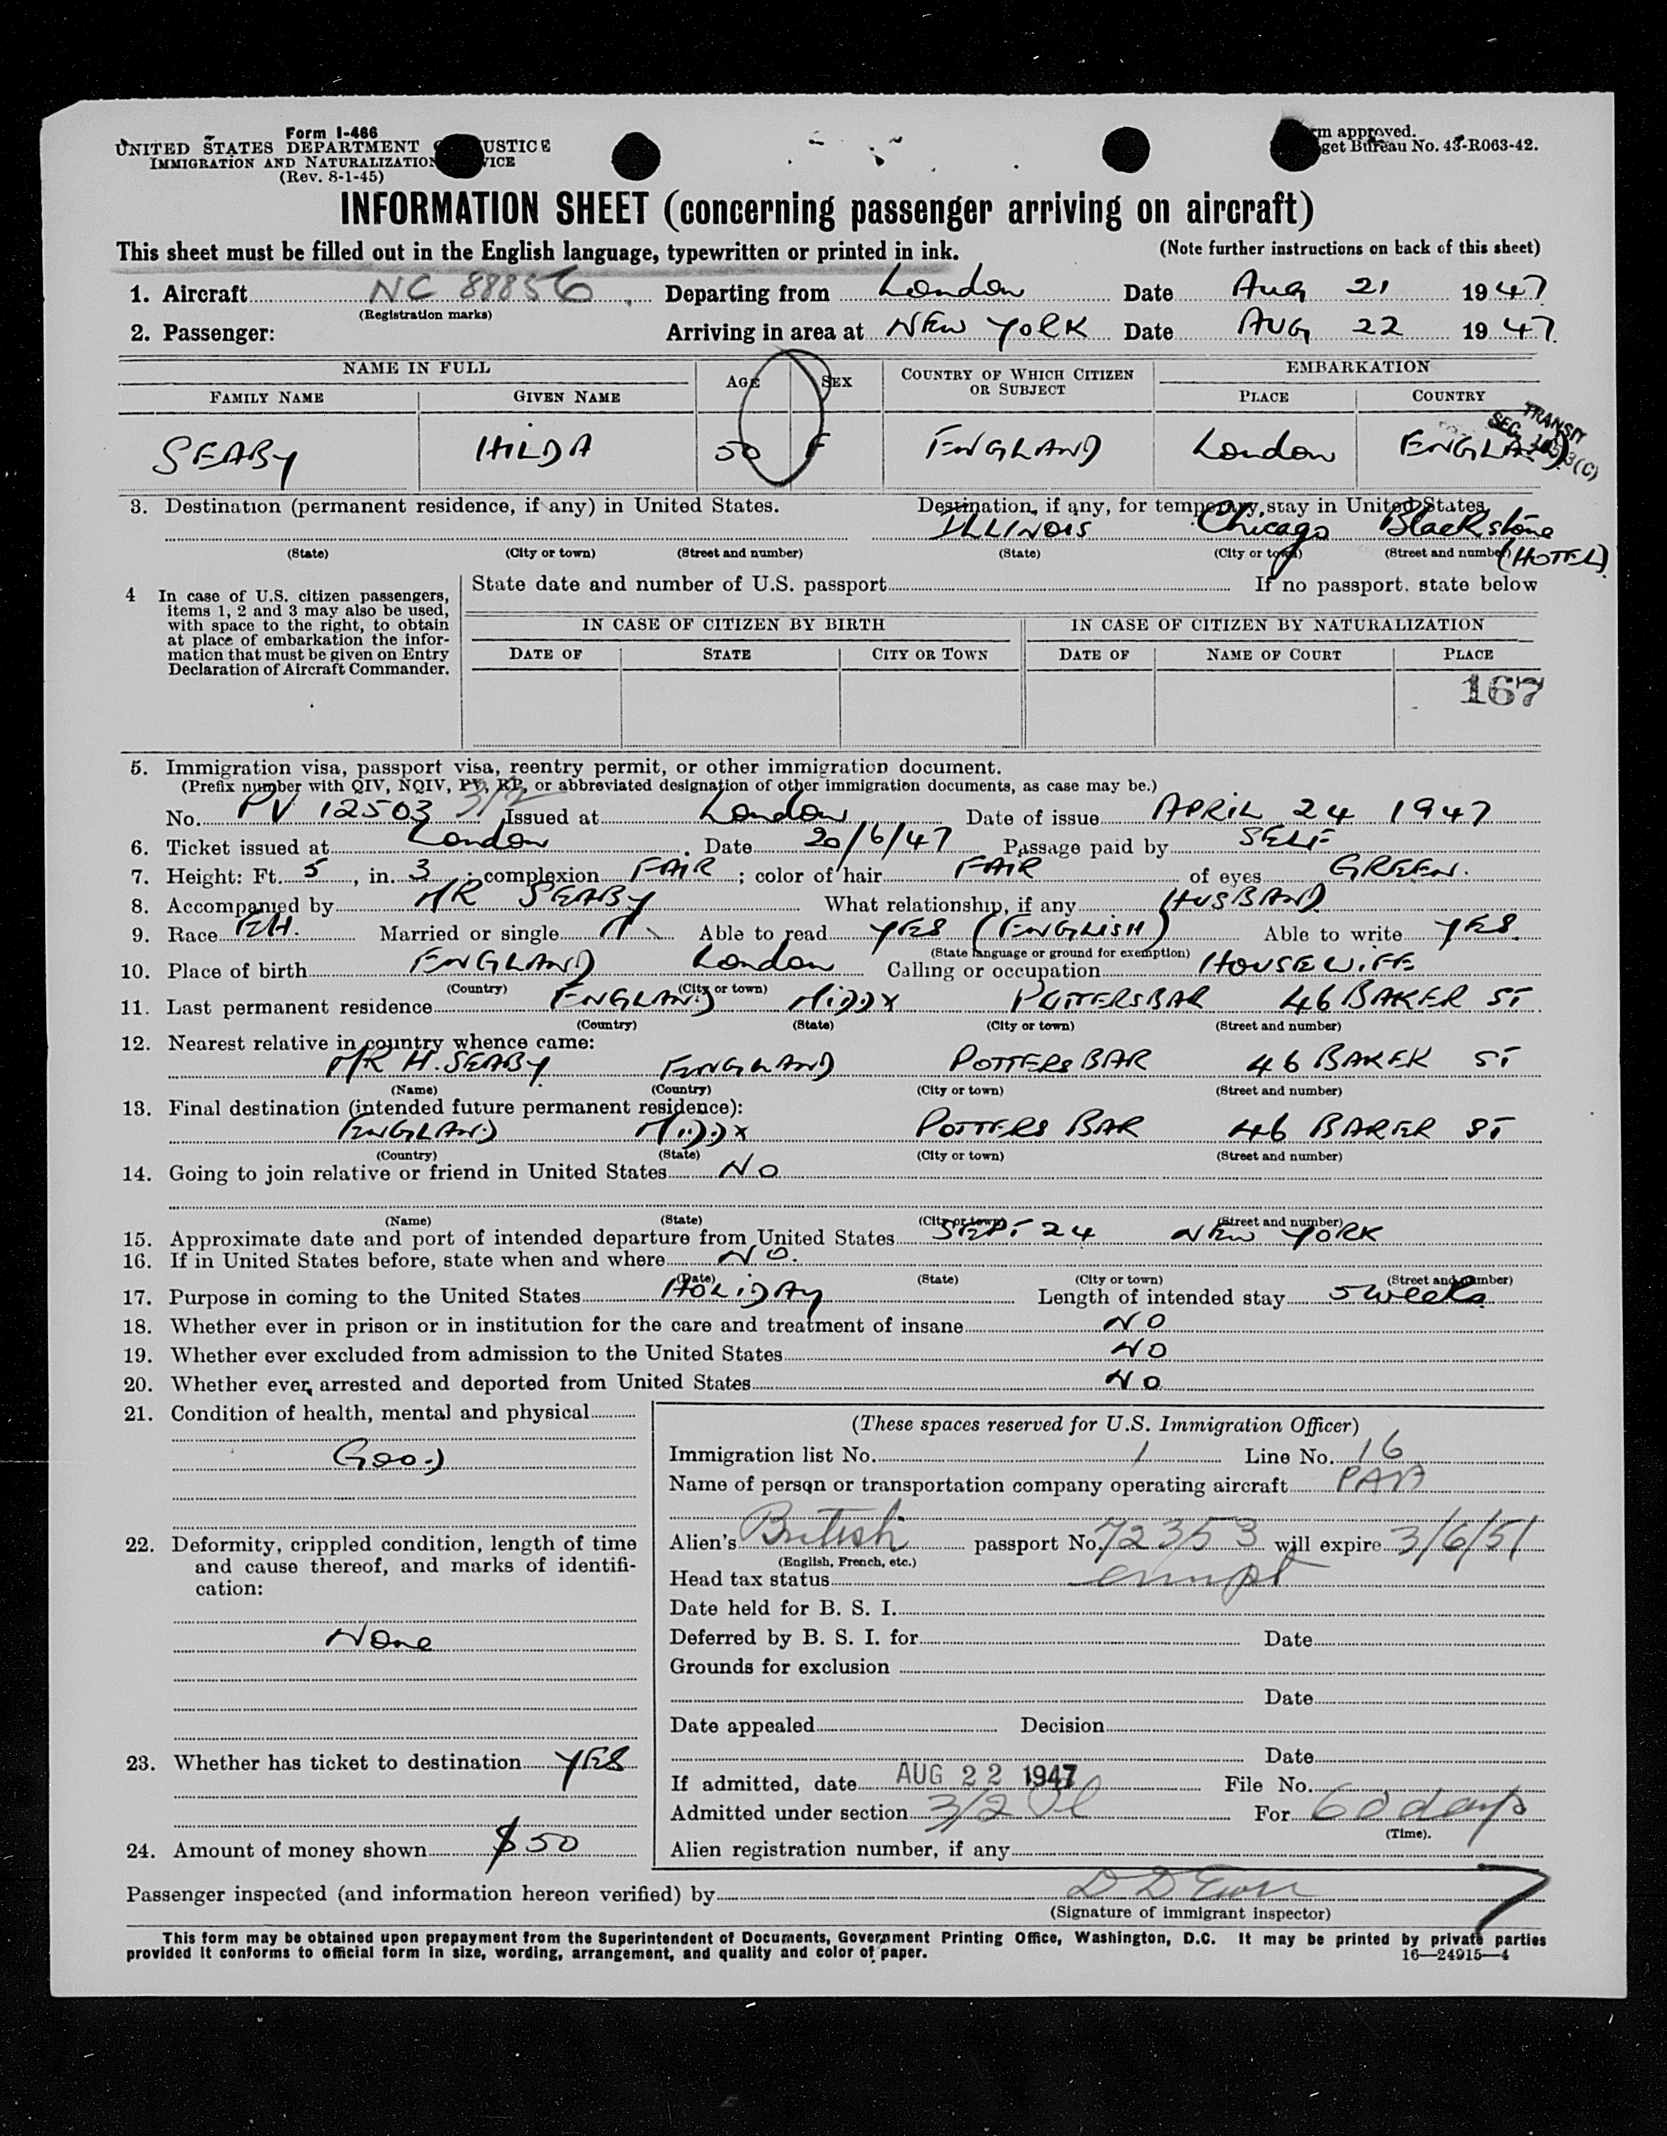 Form I-466
UNITED STATES DEPARTMENT USTICE
IMMIGRATION AND NATURALIZATION VICE
(Rev. 8-1-45)
m approved.
get Bureau No. 43-R063-42.
INFORMATION SHEET (concerning passenger arriving on aircraft)
This sheet must be filled out in the English language, typewritten or printed in ink. (Note further instructions on back of this sheet)
1. Aircraft NC 88856 Departing from London Date Aug 21 1947
(Registration marks)
2. Passenger: Arriving in area at NEW YORK Date AUG 22 1947
NAME IN FULL AGE SEX COUNTRY OF WHICH CITIZEN OR SUBJECT EMBARKATION
FAMILY NAME GIVEN NAME PLACE COUNTRY
TRANSIT
SEC. 3(C)
SEABY HILDA 50 F ENGLAND London ENGLAND
3. Destination (permanent residence, if any) in United States. Destination, if any, for temporary stay in United States
ILLINOIS Chicago Blackstone
(State) (City or town) (Street and number) (State) (City or town) (Street and number) (HOTEL)
4 In case of U.S. citizen passengers, items 1, 2 and 3 may also be used, with space to the right, to obtain at place of embarkation the information that must be given on Entry Declaration of Aircraft Commander.
State date and number of U.S. passport If no passport, state below
IN CASE OF CITIZEN BY BIRTH IN CASE OF CITIZEN BY NATURALIZATION
DATE OF STATE CITY OR TOWN DATE OF NAME OF COURT PLACE
167
5. Immigration visa, passport visa, reentry permit, or other immigration document.
(Prefix number with QIV, NQIV, PV, RP, or abbreviated designation of other immigration documents, as case may be.)
No. PV 12503 3/2 Issued at London Date of issue APRIL 24 1947
6. Ticket issued at London Date 20/6/47 Passage paid by SELF
7. Height: Ft. 5, in. 3; complexion FAIR; color of hair FAIR of eyes GREEN.
8. Accompanied by MR SEABY What relationship, if any HUSBAND
9. Race EH. Married or single M Able to read YES (ENGLISH) Able to write YES.
(State language or ground for exemption)
10. Place of birth ENGLAND London Calling or occupation HOUSEWIFE
(Country) (City or town)
11. Last permanent residence ENGLAND MIDDX POTTERSBAR 46 BAKER ST
(Country) (State) (City or town) (Street and number)
12. Nearest relative in country whence came:
MR H. SEABY ENGLAND POTTERSBAR 46 BAKER ST
(Name) (Country) (City or town) (Street and number)
13. Final destination (intended future permanent residence):
ENGLAND MIDDX POTTERS BAR 46 BAKER ST
(Country) (State) (City or town) (Street and number)
14. Going to join relative or friend in United States NO
(Name) (State) (City or town) (Street and number)
15. Approximate date and port of intended departure from United States SEPT 24 NEW YORK
16. If in United States before, state when and where NO.
(Date) (State) (City or town) (Street and number)
17. Purpose in coming to the United States HOLIDAY Length of intended stay 5 weeks
18. Whether ever in prison or in institution for the care and treatment of insane NO
19. Whether ever excluded from admission to the United States NO
20. Whether ever arrested and deported from United States NO
21. Condition of health, mental and physical
Good
22. Deformity, crippled condition, length of time and cause thereof, and marks of identification:
None
23. Whether has ticket to destination YES
24. Amount of money shown $50
(These spaces reserved for U.S. Immigration Officer)
Immigration list No. 1 Line No. 16
Name of person or transportation company operating aircraft PAA
Alien's British passport No. 72353 will expire 3/6/51
(English, French, etc.)
Head tax status exmpt
Date held for B. S. I.
Deferred by B. S. I. for Date
Grounds for exclusion
Date
Date appealed Decision
Date
If admitted, date AUG 22 1947 File No.
Admitted under section 3/2 For 60 days
(Time).
Alien registration number, if any
Passenger inspected (and information hereon verified) by D D
(Signature of immigrant inspector)
This form may be obtained upon prepayment from the Superintendent of Documents, Government Printing Office, Washington, D.C. It may be printed by private parties
provided it conforms to official form in size, wording, arrangement, and quality and color of paper. 16—24915—4